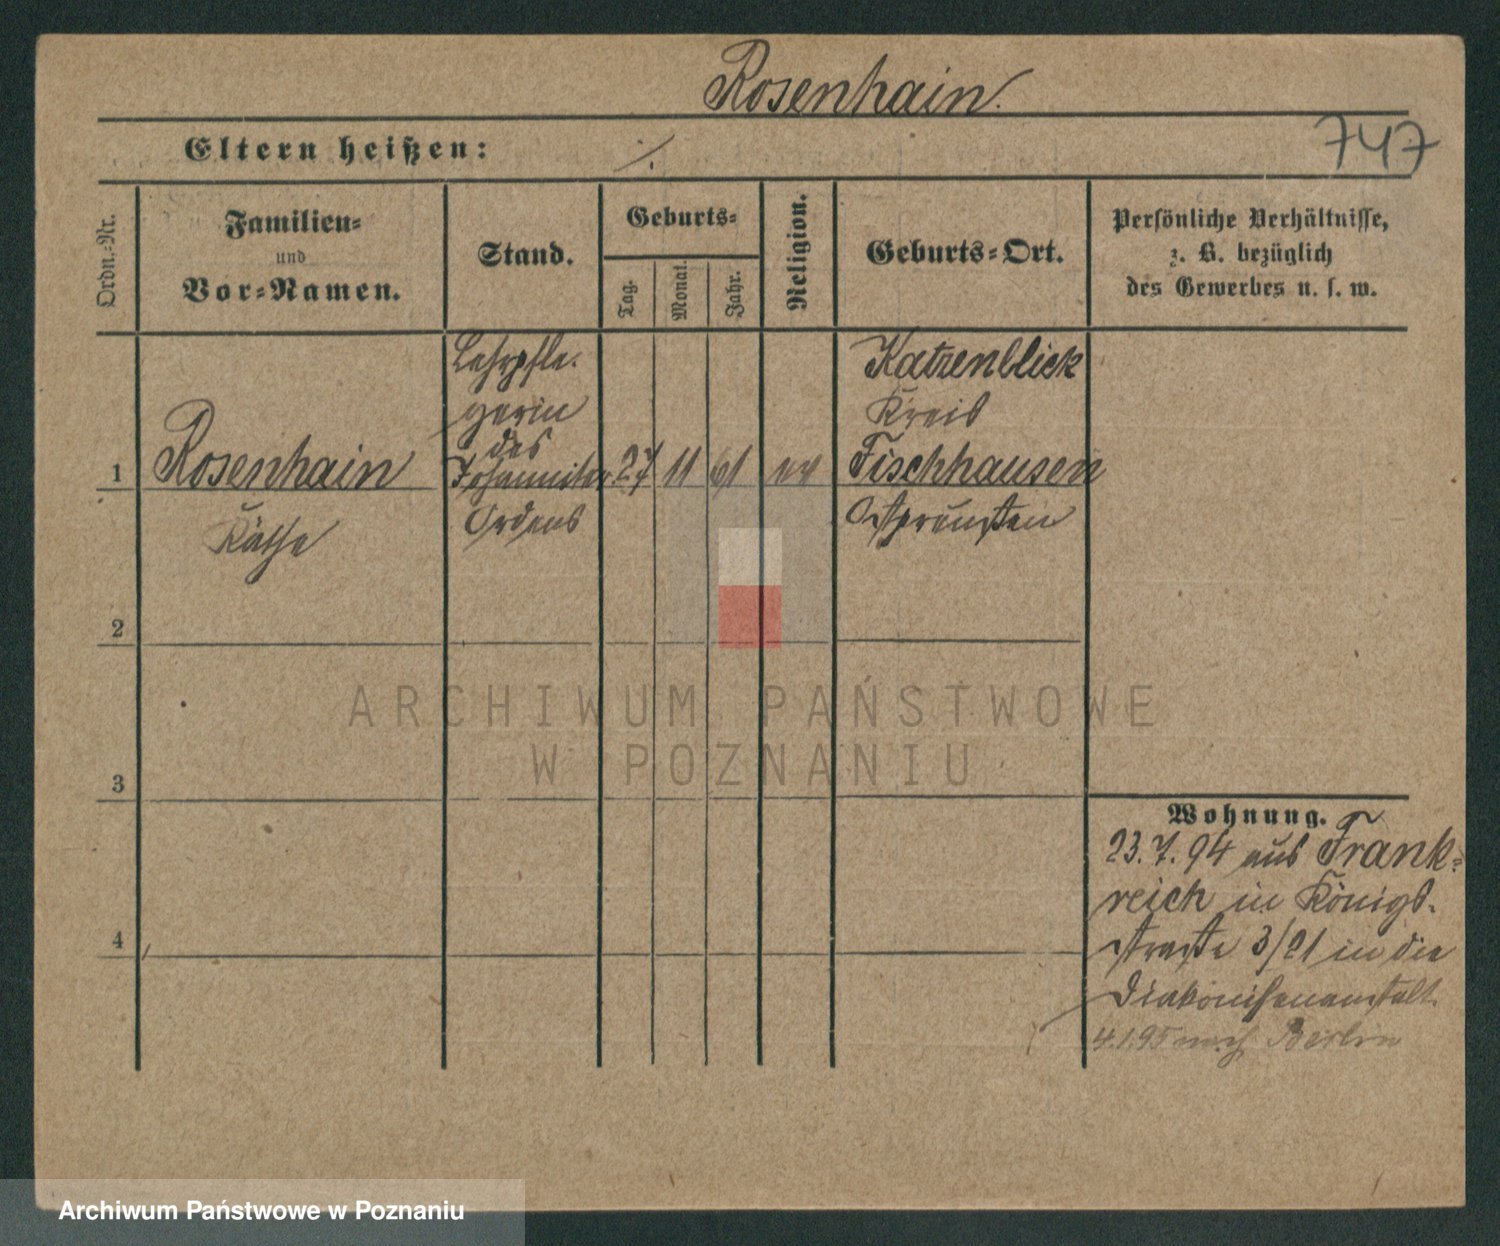 Rosenhain.
747
Eltern heißen: ./.
Ordn.-Nr.
Familien-
und
Vor-Namen.
Stand.
Geburts-
Tag.
Monat.
Jahr.
Religion.
Geburts-Ort.
Persönliche Verhältnisse,
z. B. bezüglich
des Gewerbes u. s. w.
1
Rosenhain
Käthe
Lehrpfle-
gerin
des
Johanniter
Ordens
27 11 61 ev
Katzenblick
Kreis
Fischhausen
Ostpreußen
2
3
4
Wohnung.
23.7.94 aus Frank-
reich in Königs-
straße 3/21 in die
Diakonissenanstalt.
4.1.95 nach Berlin
ARCHIWUM PAŃSTWOWE
W POZNANIU
Archiwum Państwowe w Poznaniu